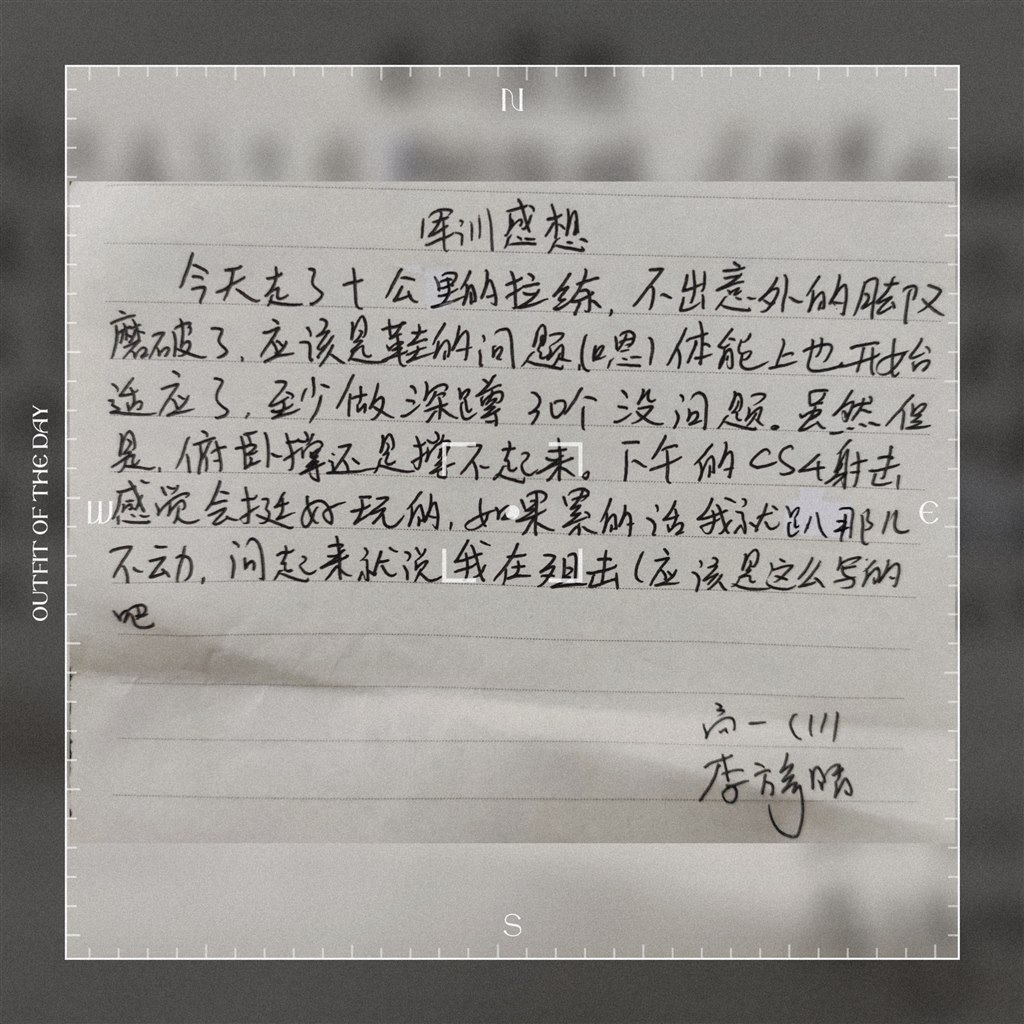 N
军训感想
今天走了十公里的拉练,不出意外的脚又
磨破了,应该是鞋的问题(嗯)体能上也开始
适应了,至少做深蹲30个没问题。虽然但
是,俯卧撑还是撑不起来。下午的CS4射击,
感觉会挺好玩的,如果累的话我就趴那儿
不动,问起来就说我在狙击(应该是这么写的
吧
高一(11)
李方
W
E
OUTFIT OF THE DAY
S